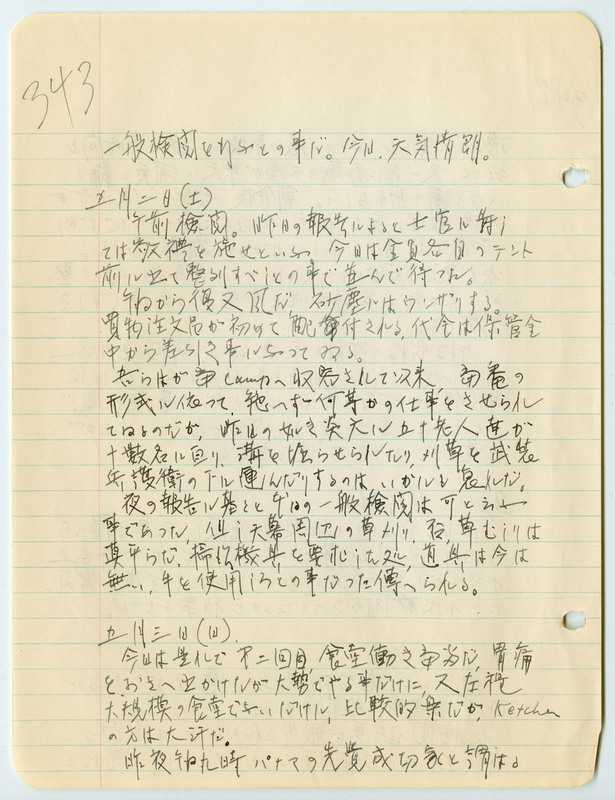 343
一般検閲を行ふとの事だ。今日、天気清朗。
五月二日(土)
午前検閲。昨日の報告によると士官に対し
ては敬礼を施せといふ。今日は全員各自のテント
前に出て整列すべしとの事で並んで待つた。
午后から優又風だ 砂塵にはウンザリする。
買物注文品が初めて配付される。代金は保管金
中から差引く事になつてゐる。
吾らはが当campへ収容されて以来、当番の
形式に依つて、絶へず何等かの仕事をさせられ
てゐるのだが、昨日の如き炎天に五十老人達が
十数名も宛り、溝を掘らせられたり、刈草を武装
兵護衛の下に運んだりするのは、いかにも急だ。
夜の報告に基くと本日の一般検閲は可と云ふ
事であつた、但し天幕周辺の草刈り、否、草むしりは
真平らだ。掃除機具を要求した処、道具は今は
無い、手を使用しろとの事だつた傳へられる。
五月三日(日).
今日は是れで第二回目、食堂働き当番だ。胃痛
をおさへ出かけたが大勢でやる事だけに、又左程
大規模の食堂でないだけに、比較的楽だが、Ketchen
の方は大汗だ。
昨夜午后九時 パナマの先覚成功家と謂はる